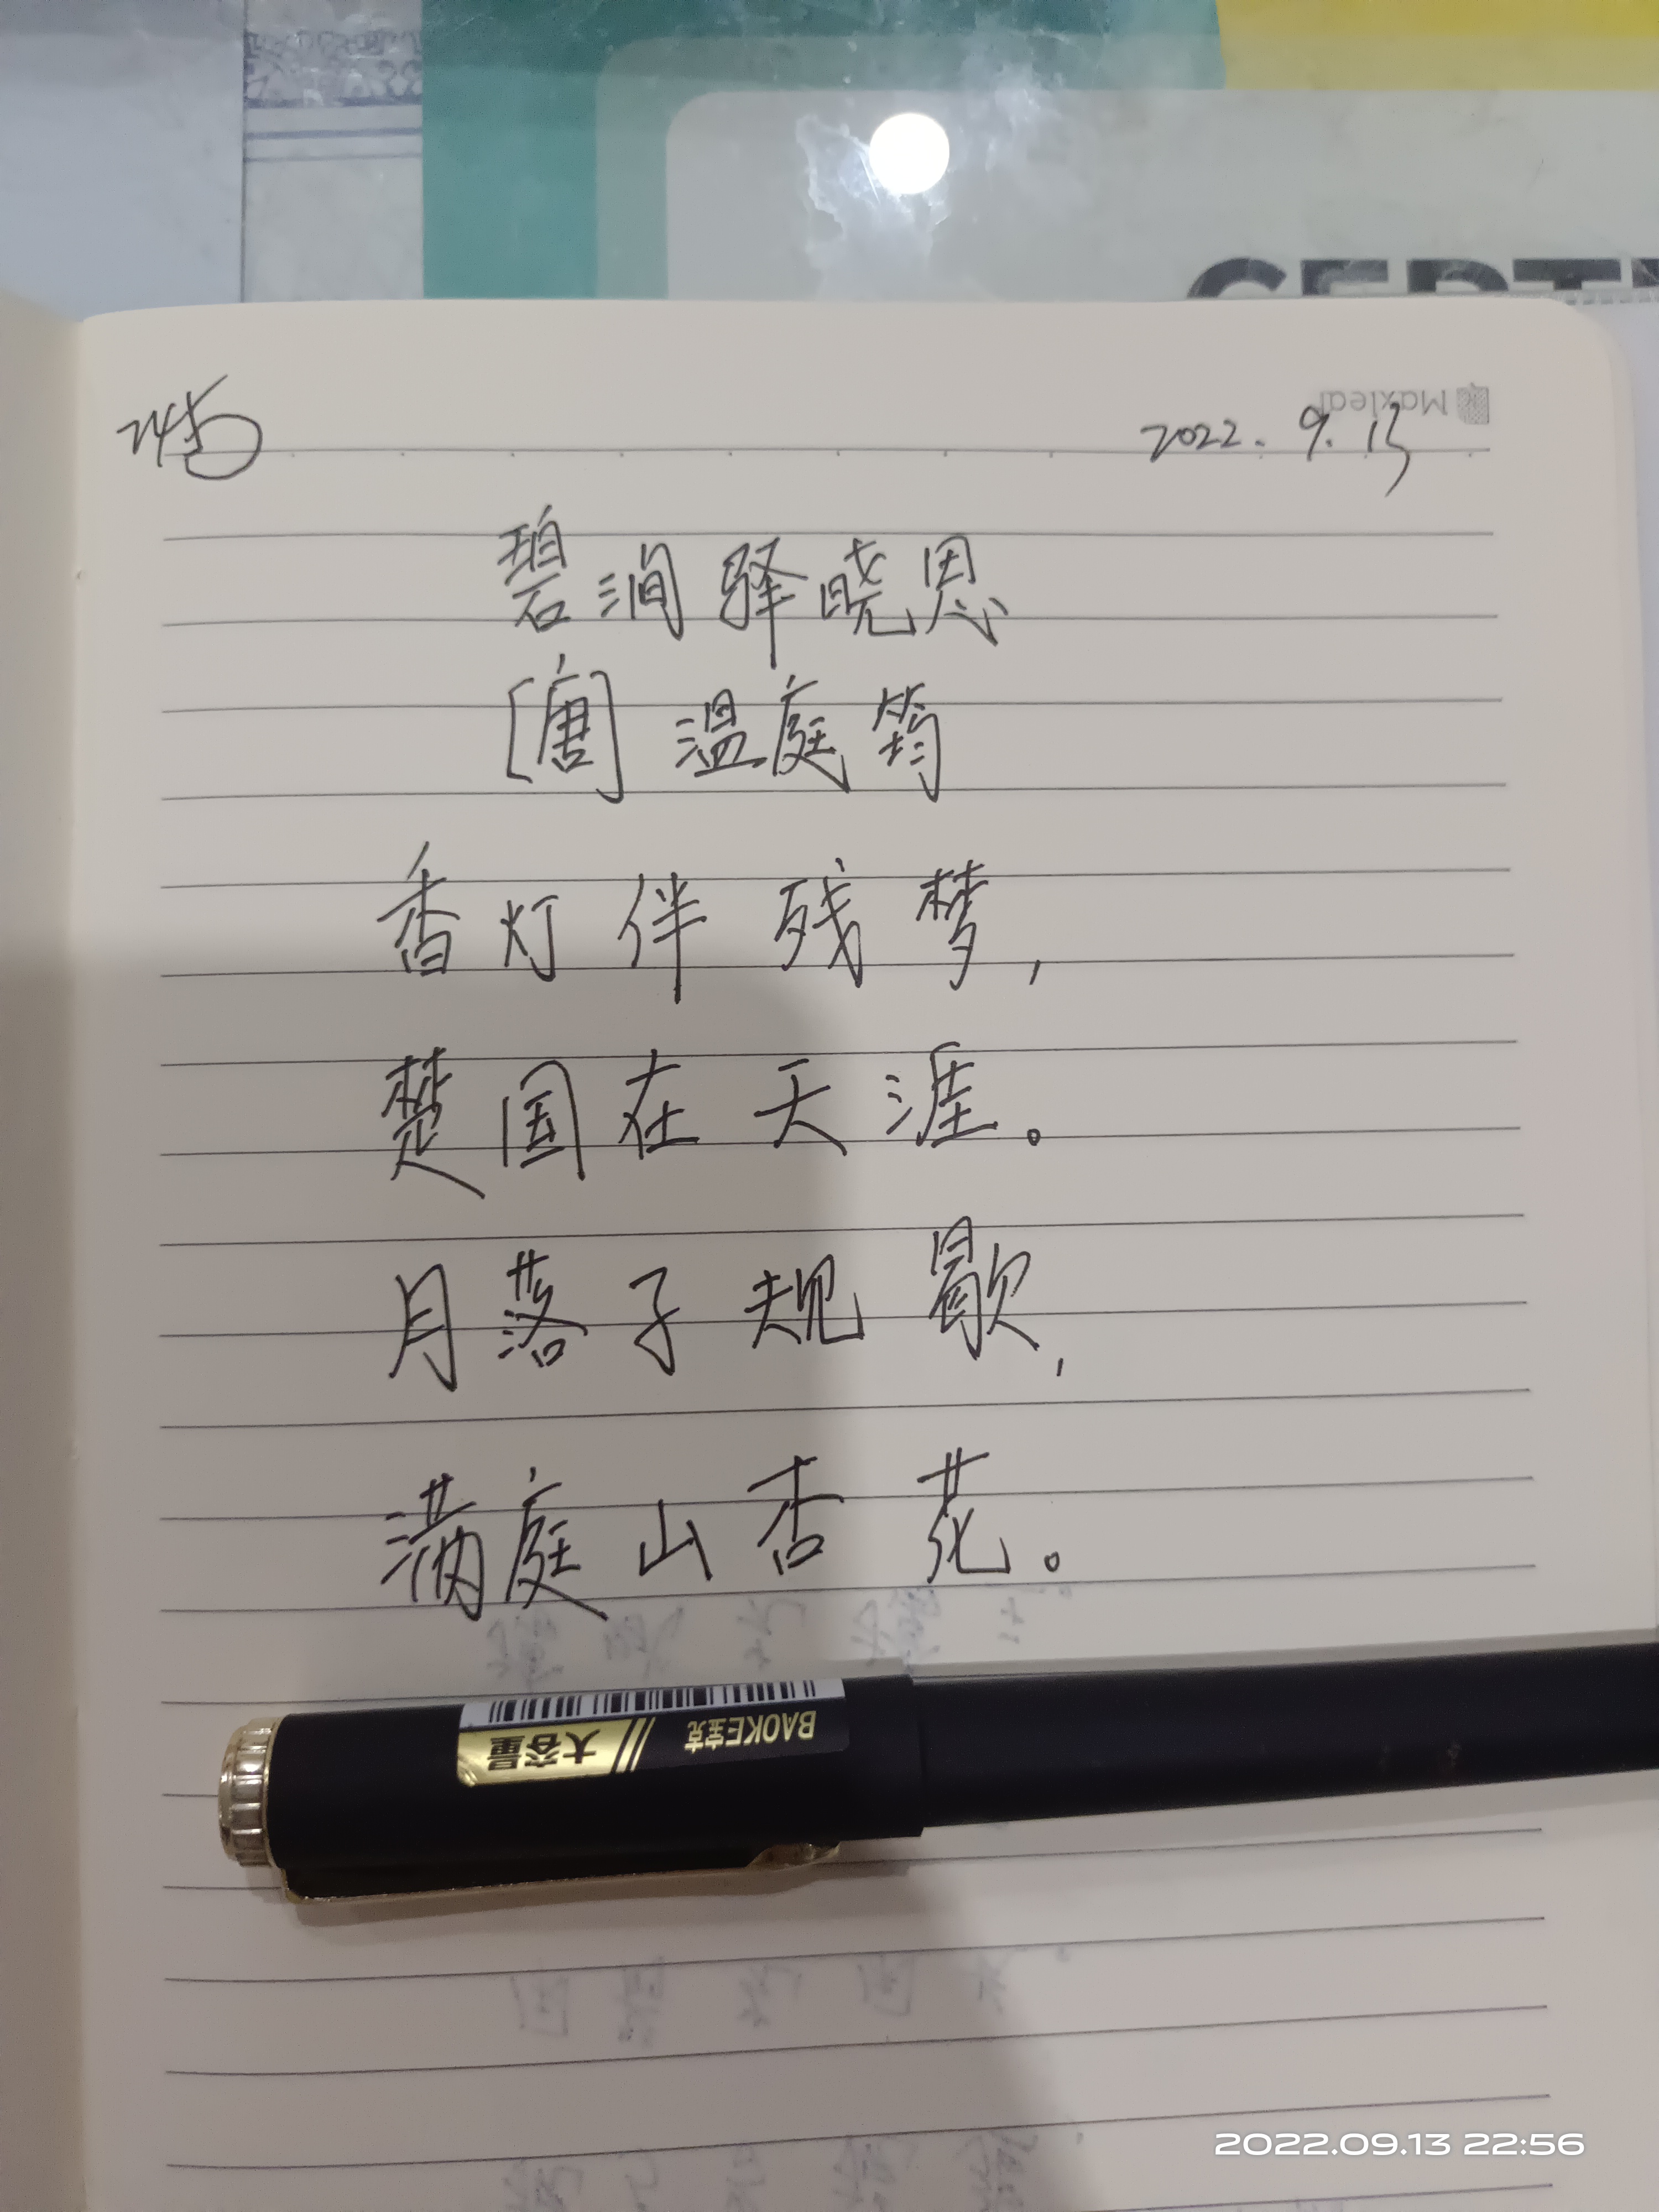 Maxleaf
2022.9.13
碧涧驿晓恩
[唐] 温庭筠
香灯伴残梦,
楚国在天涯。
月落子规歇,
满庭山杏花。
BAOKE宝克 大容量
2022.09.13 22:56